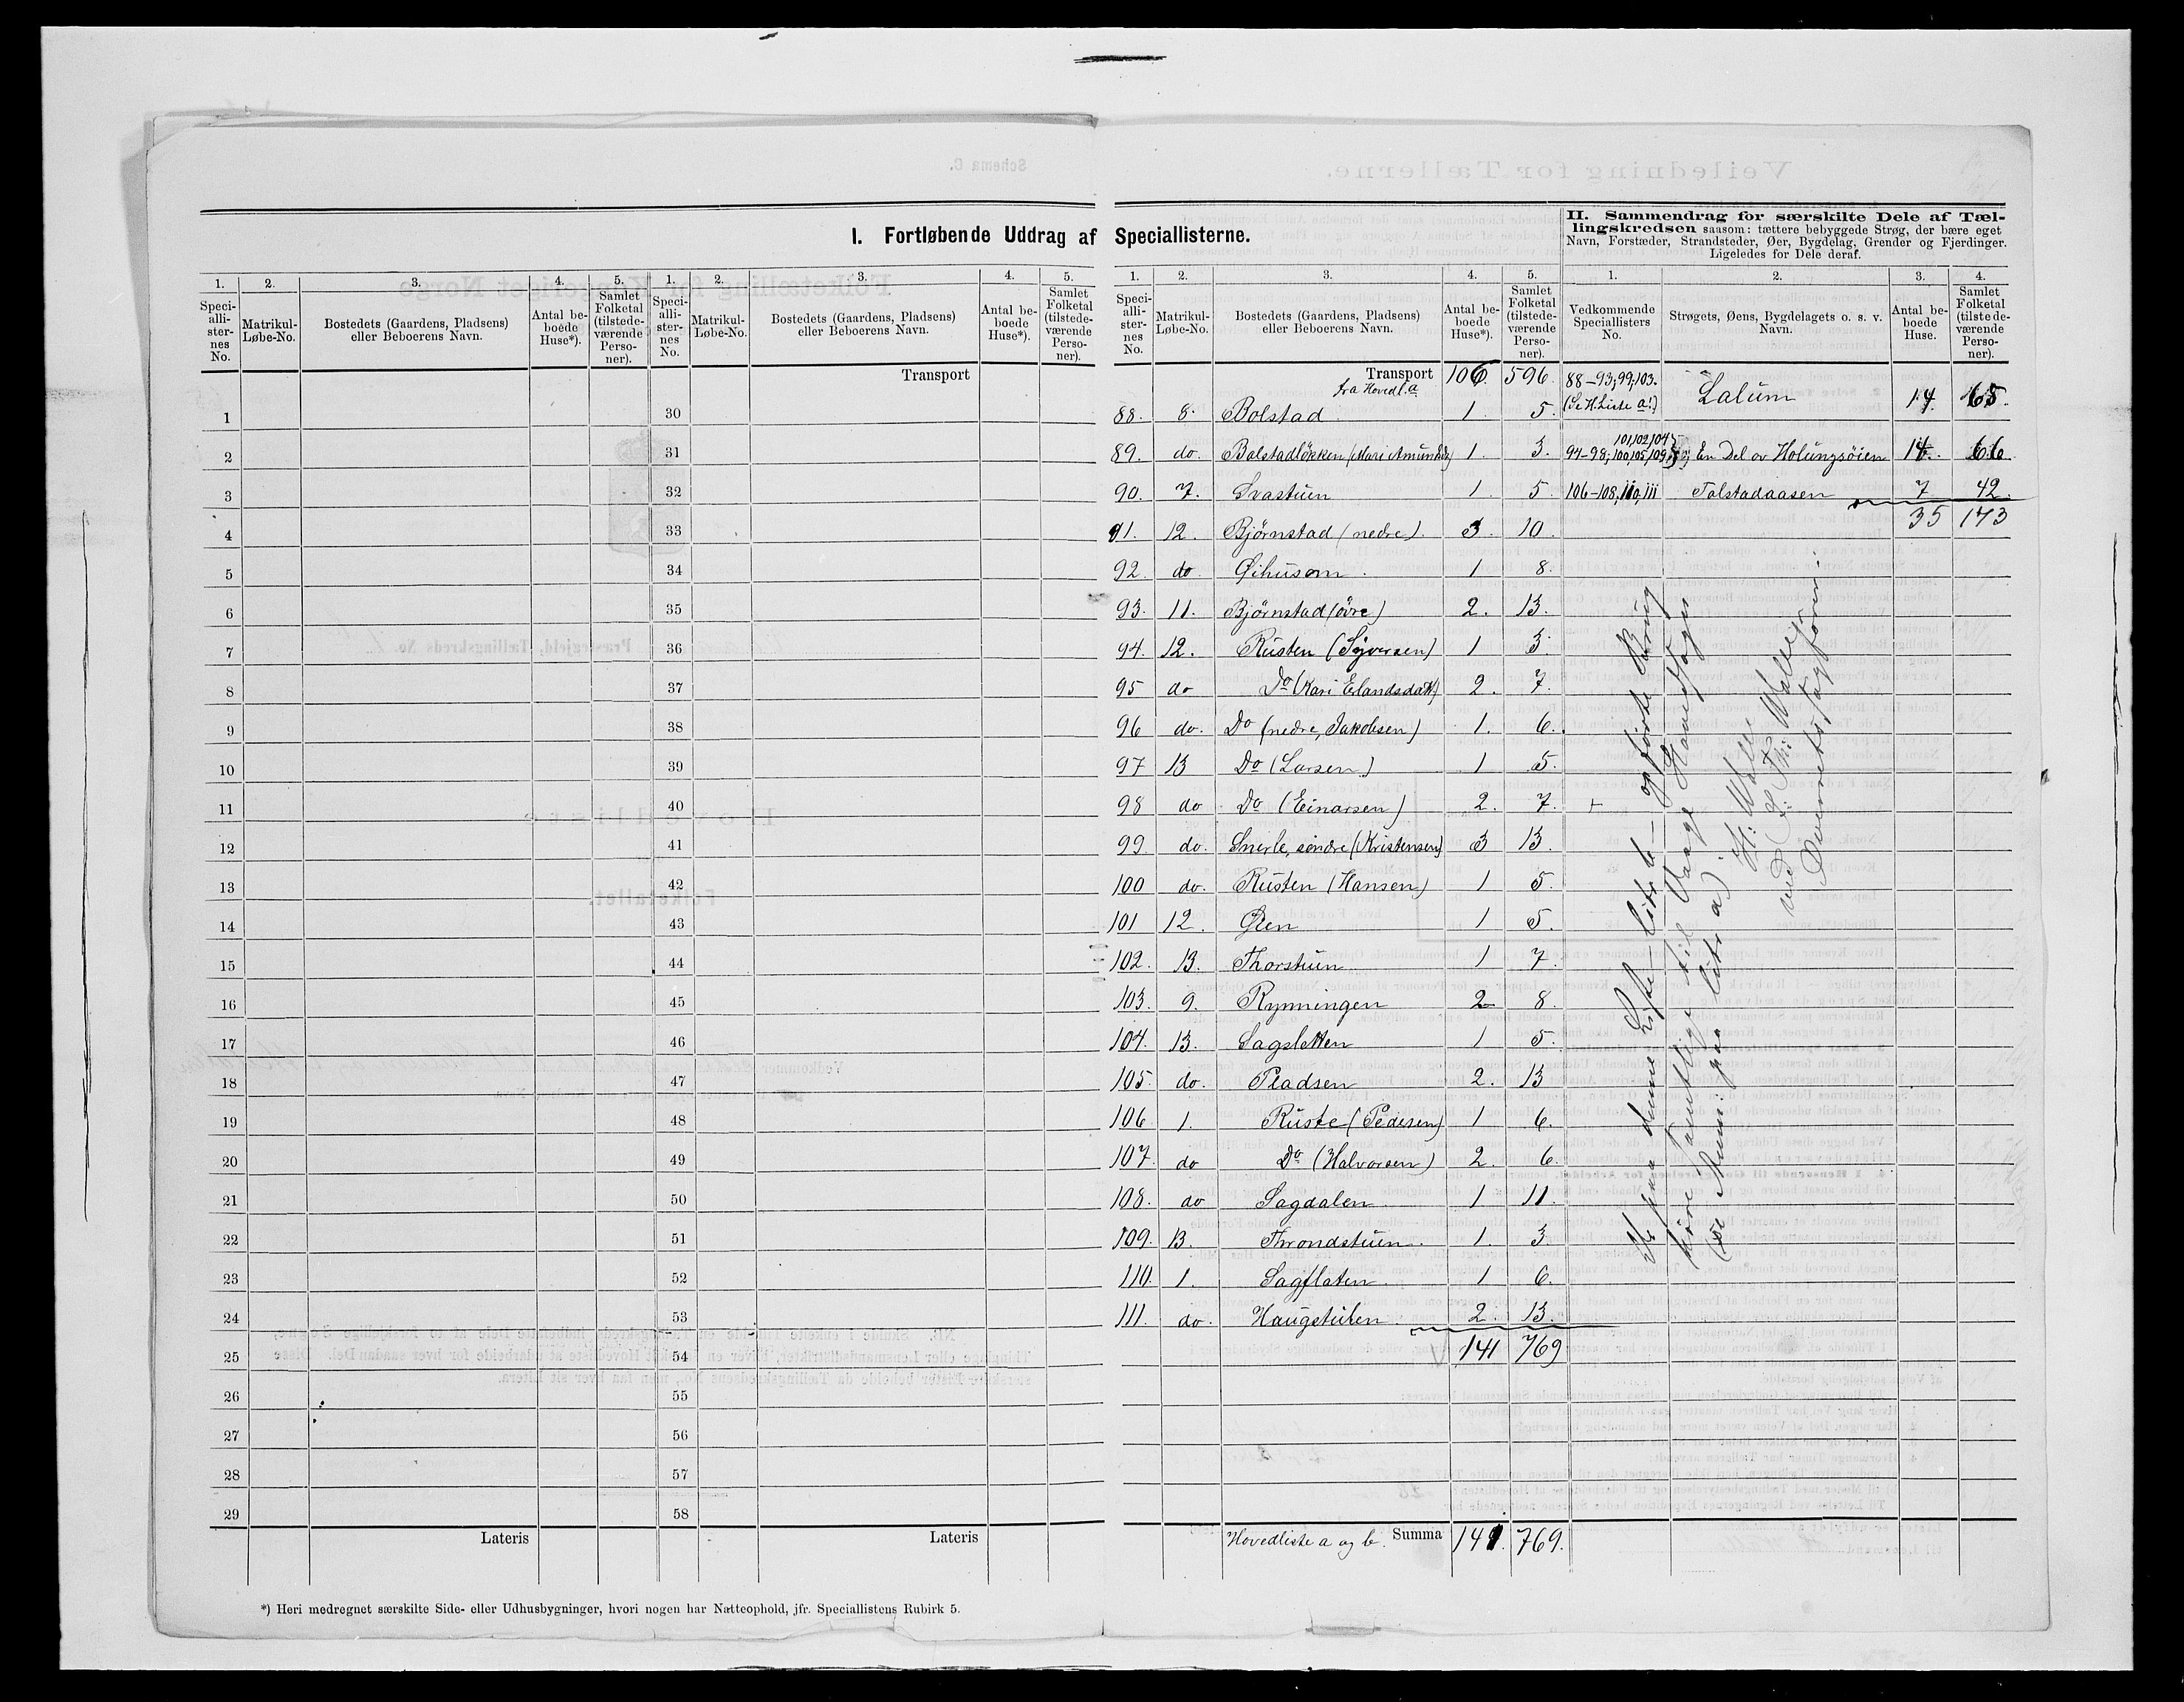 I. Fortløbende Uddrag af Speciallisterne.
II. Sammendrag for særskilte Dele af Tæl-
lingskredsen saasom: tættere bebyggede Strøg, der bære eget
Navn, Forstæder, Strandsteder, Øer, Bygdelag, Grender og Fjerdinger.
Ligeledes for Dele deraf.
1. 2. 3. 4. 5. 1. 2. 3. 4. 5.
Speciallisternes No. Matrikul-Løbe-No. Bostedets (Gaardens, Pladsens) eller Beboerens Navn. Antal beboede Huse*). Samlet Folketal (tilstedeværende Personer).
Speciallisternes No. Matrikul-Løbe-No. Bostedets (Gaardens, Pladsens) eller Beboerens Navn. Antal beboede Huse*). Samlet Folketal (tilstedeværende Personer).
Transport
1 30
2 31
3 32
4 33
5 34
6 35
7 36
8 37
9 38
10 39
11 40
12 41
13 42
14 43
15 44
16 45
17 46
18 47
19 48
20 49
21 50
22 51
23 52
24 53
25 54
26 55
27 56
28 57
29 58
Lateris Lateris
*) Heri medregnet særskilte Side- eller Udhusbygninger, hvori nogen har Natteophold, jfr. Speciallistens Rubirk 5.
1. 2. 3. 4. 5.
Speciallisternes No. Matrikul-Løbe-No. Bostedets (Gaardens, Pladsens) eller Beboerens Navn. Antal beboede Huse*). Samlet Folketal (tilstedeværende Personer).
Transport 106. 596.
fra Hovedl. a
88. 8. Bolstad 1 5.
89. do. Bolstadløkken (Mari Amundsd) 1. 3.
90. 7. Svastuen 1. 5.
91. 12. Bjørnstad (nedre). 3. 10.
92. do. Øihusom. 1 8.
93. 11. Bjørnstad (övre) 2. 13.
94. 12. Rusten (Syversen) 1 3.
95 do Do (Kari Erlandsdatt) 2. 7.
96 do. Do (nedre, Jakobsen) 1. 6.
97 13 Do (Larsen) 1 5.
98 do Do (Einarsen) 2. 7. +
99. do. Snerle, söndre (Kristensen) 3 13.
100 do. Rusten (Hansen) 1 5.
101 12. Øien 1 5.
102. 13. Thorstuen 1 7.
103. 9. Rynningen 2 8.
104. 13. Sagsletten 1 5.
105. do. Pladsen 2. 13
106 1. Ruste (Pedersen) 1 6.
107. do Do (Halvorsen) 2. 6.
108. do Sagdalen 1 11.
109. 13. Throndstuen. 1. 3.
110. 1. Sagflaten 1 6.
111. do. Haugstulen 2. 13.
141 769
Hovedliste a og b. Summa 141. 769.
1. 2. 3. 4.
Vedkommende Speciallisters No. Strøgets, Øens, Bygdelagets o. s. v. Navn. Antal beboede Huse. Samlet Folketal (tilstedeværende Personer).
88-93, 99, 103. (Se H. Liste a!) Lalum 14. 65.
94-98, 100, 101, 102, 104, 105, 109 En Del av Holungsøien 14. 66
106-108, 110, 111 Tolstadaasen 7 42.
35 173
De paa denne Liste - Litr. b - opførte Brug
høre samtlige til Vaage Hovedsogn
(se Anm: paa Litr a)
H: Walle
ved